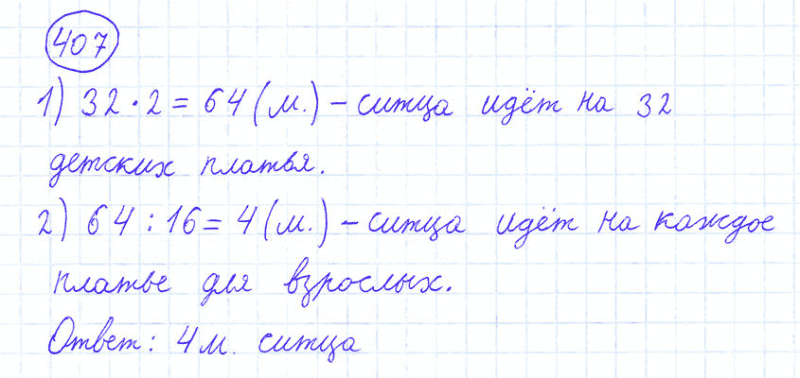 407
1) 32 · 2 = 64 (м.) – ситца идёт на 32
детских платья.
2) 64 : 16 = 4 (м.) – ситца идёт на каждое
платье для взрослых.
Ответ: 4 м. ситца